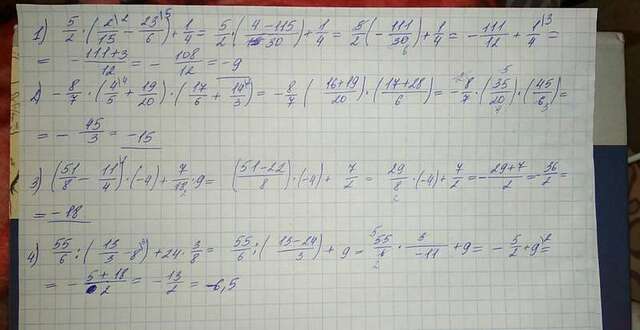 1) 5/2 · (2\2/15 − 23\5/6) + 1/4 = 5/2 · (4−115/30) + 1/4 = 5/2 (−111/30) + 1/4 = −111/12 + 1\3/4 =
= −111+3/12 = −108/12 = −9
2) −8/7 · (4\4/5 + 19/20) · (17/6 + 14\2/3) = −8/7 (16+19/20) · (17+28/6) = −8/7 · (35/20) · (45/6) =
= −45/3 = −15
3) (51/8 − 11/4) · (−4) + 7/18 · 9 = (51−22/8) · (−4) + 7/2 = 29/8 · (−4) + 7/2 = −29+7/2 = −36/2 =
= −18
4) 55/6 : (13/3 − 8) + 24 · 3/8 = 55/6 : (13−24/3) + 9 = 55/6 · 3/−11 + 9 = −5/2 + 9\2 =
= −5+18/2 = −13/2 = −6,5